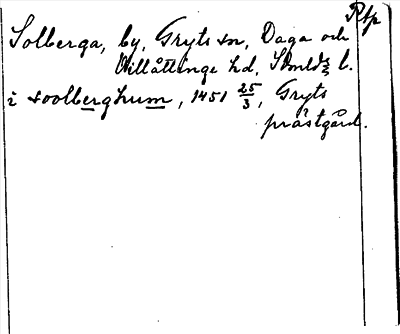 Rtp
Solberga, by, Gryts sn, Daga och
Villåttinge hd, Smlds l.
i soolberghum, 1451 25/3, Gryts
prästgård.